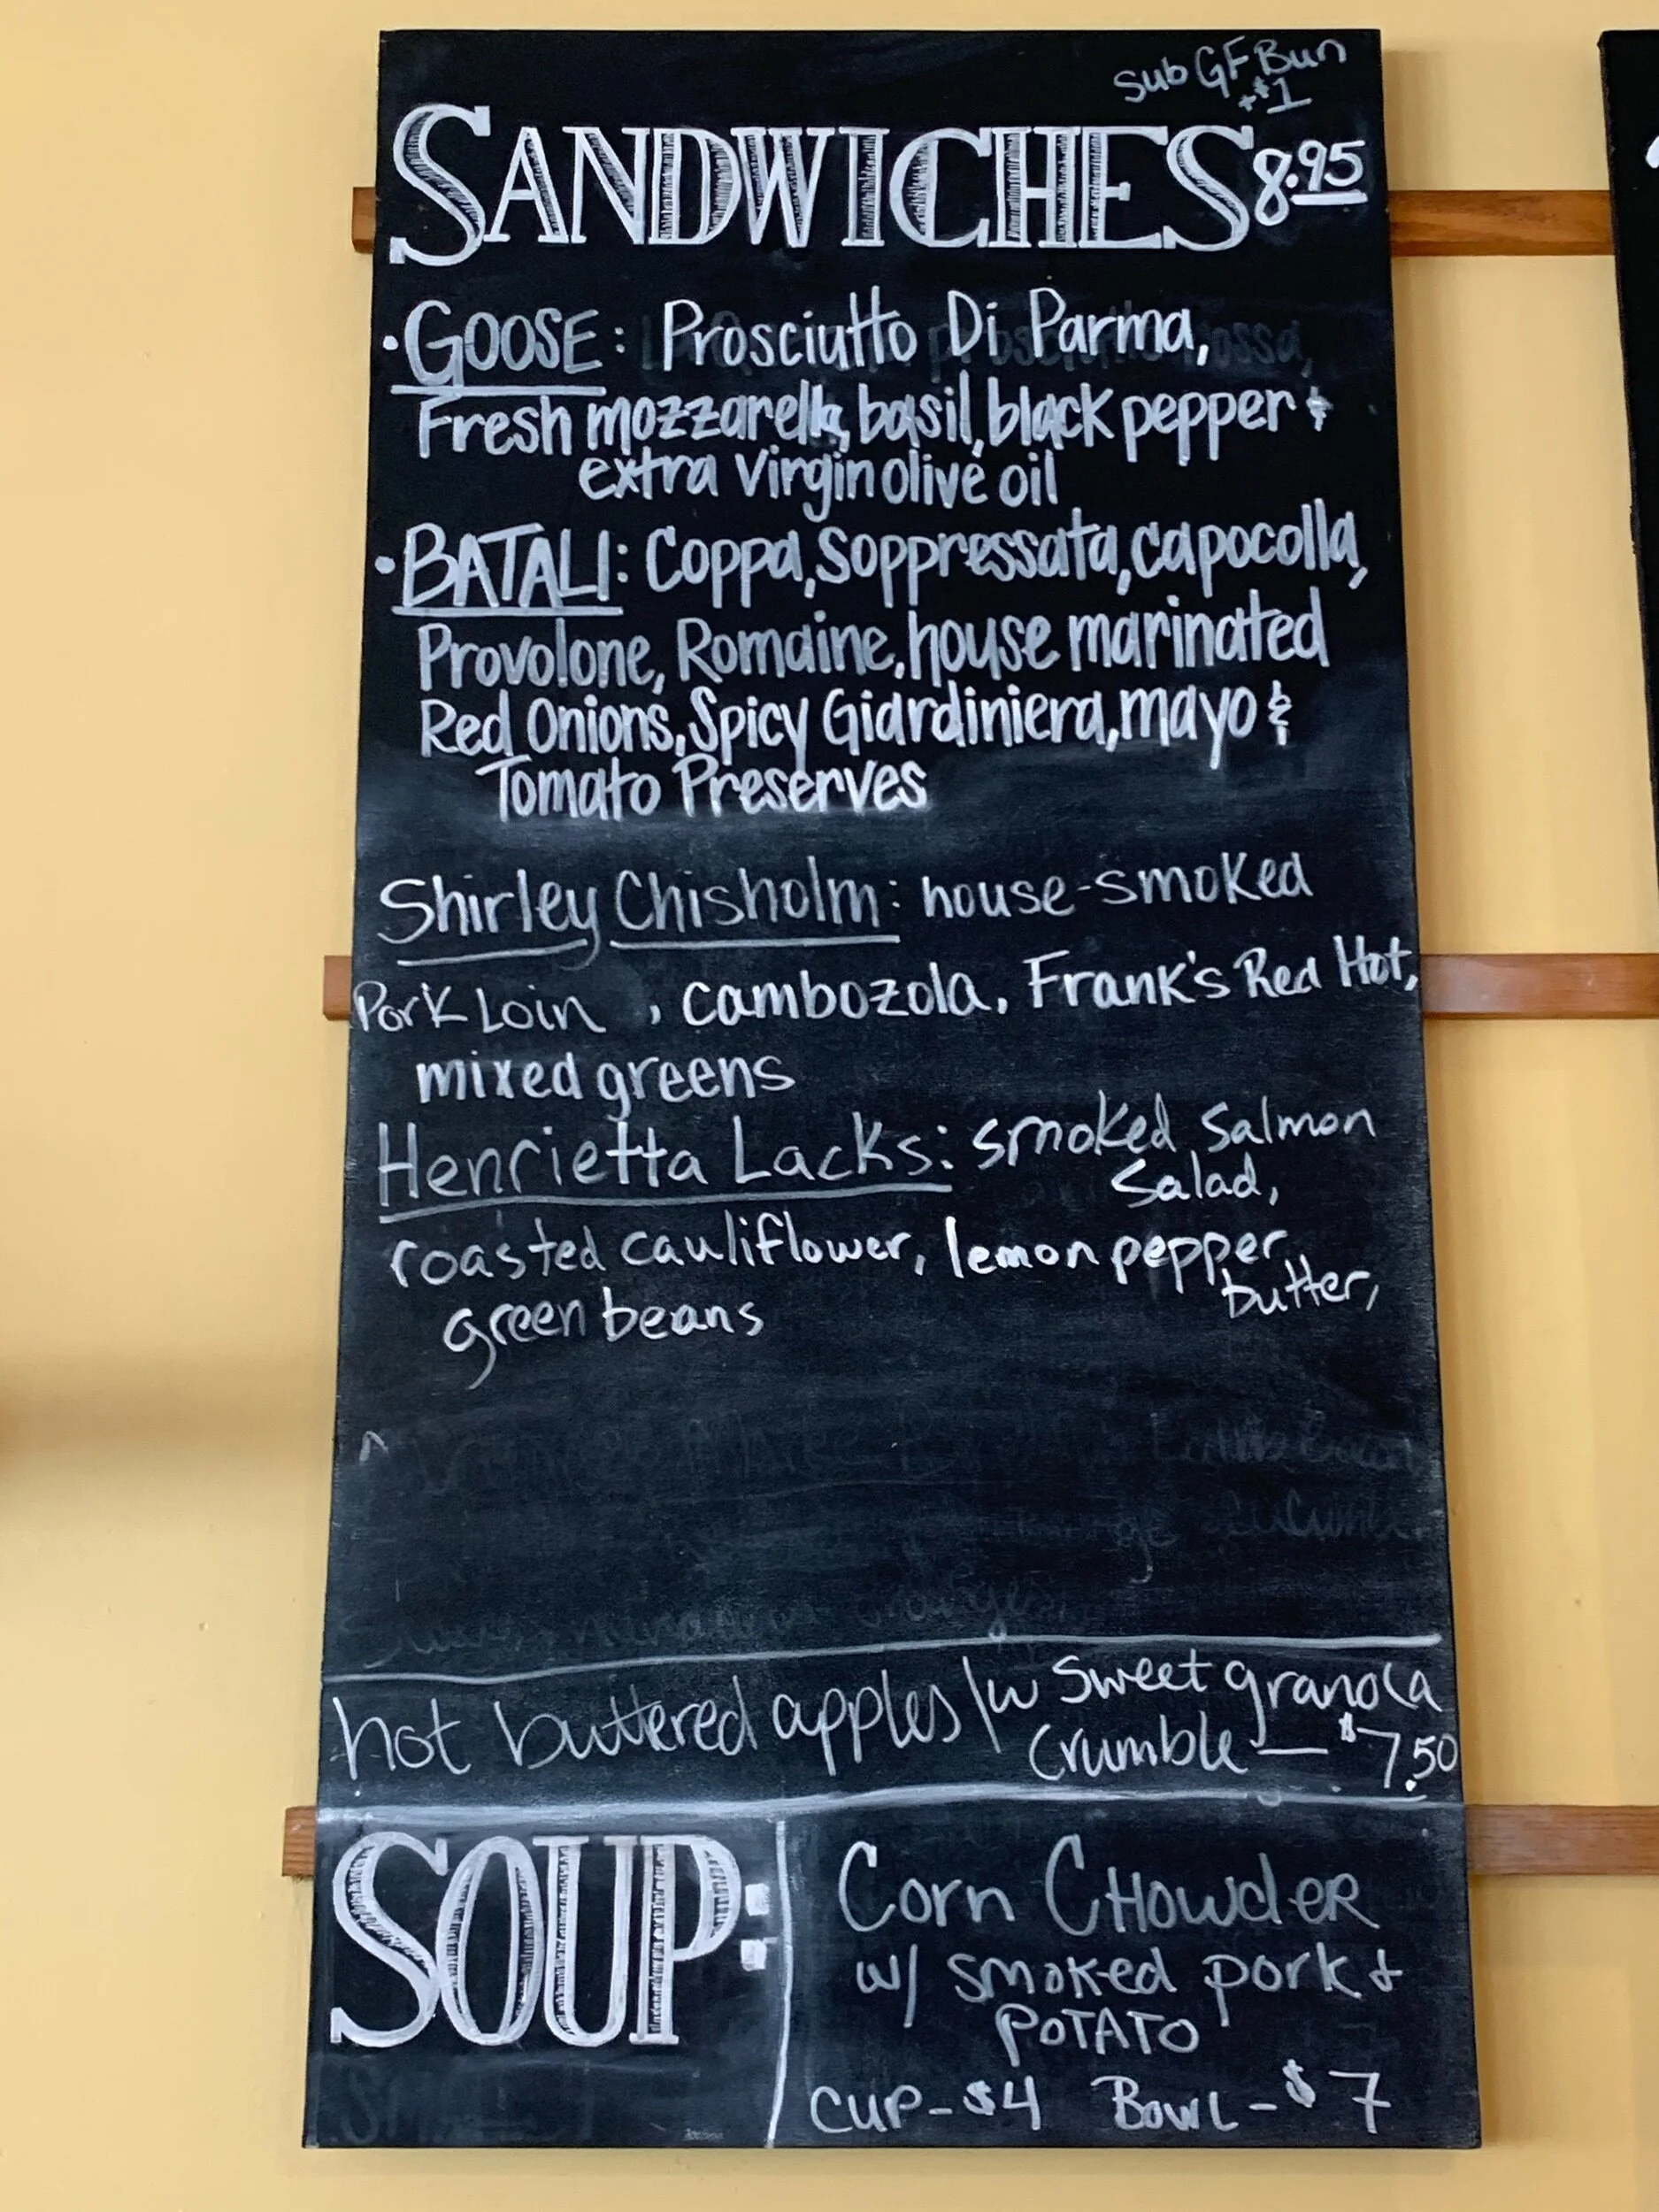 sub GF Bun
+$1
SANDWICHES 8.95
• GOOSE: Prosciutto Di Parma,
Fresh mozzarella, basil, black pepper &
extra virgin olive oil
• BATALI: Coppa, Soppressata, capocolla,
Provolone, Romaine, house marinated
Red Onions, Spicy Giardiniera, mayo &
Tomato Preserves
Shirley Chisholm: house-smoked
Pork Loin, cambozola, Frank's Red Hot,
mixed greens
Henrietta Lacks: smoked salmon
salad,
roasted cauliflower, lemon pepper
butter,
green beans
hot buttered apples \w sweet granola
crumble — $7.50
SOUP:
Corn CHowdER
w/ smoked pork +
POTATO
CUP - $4 BOWL - $7